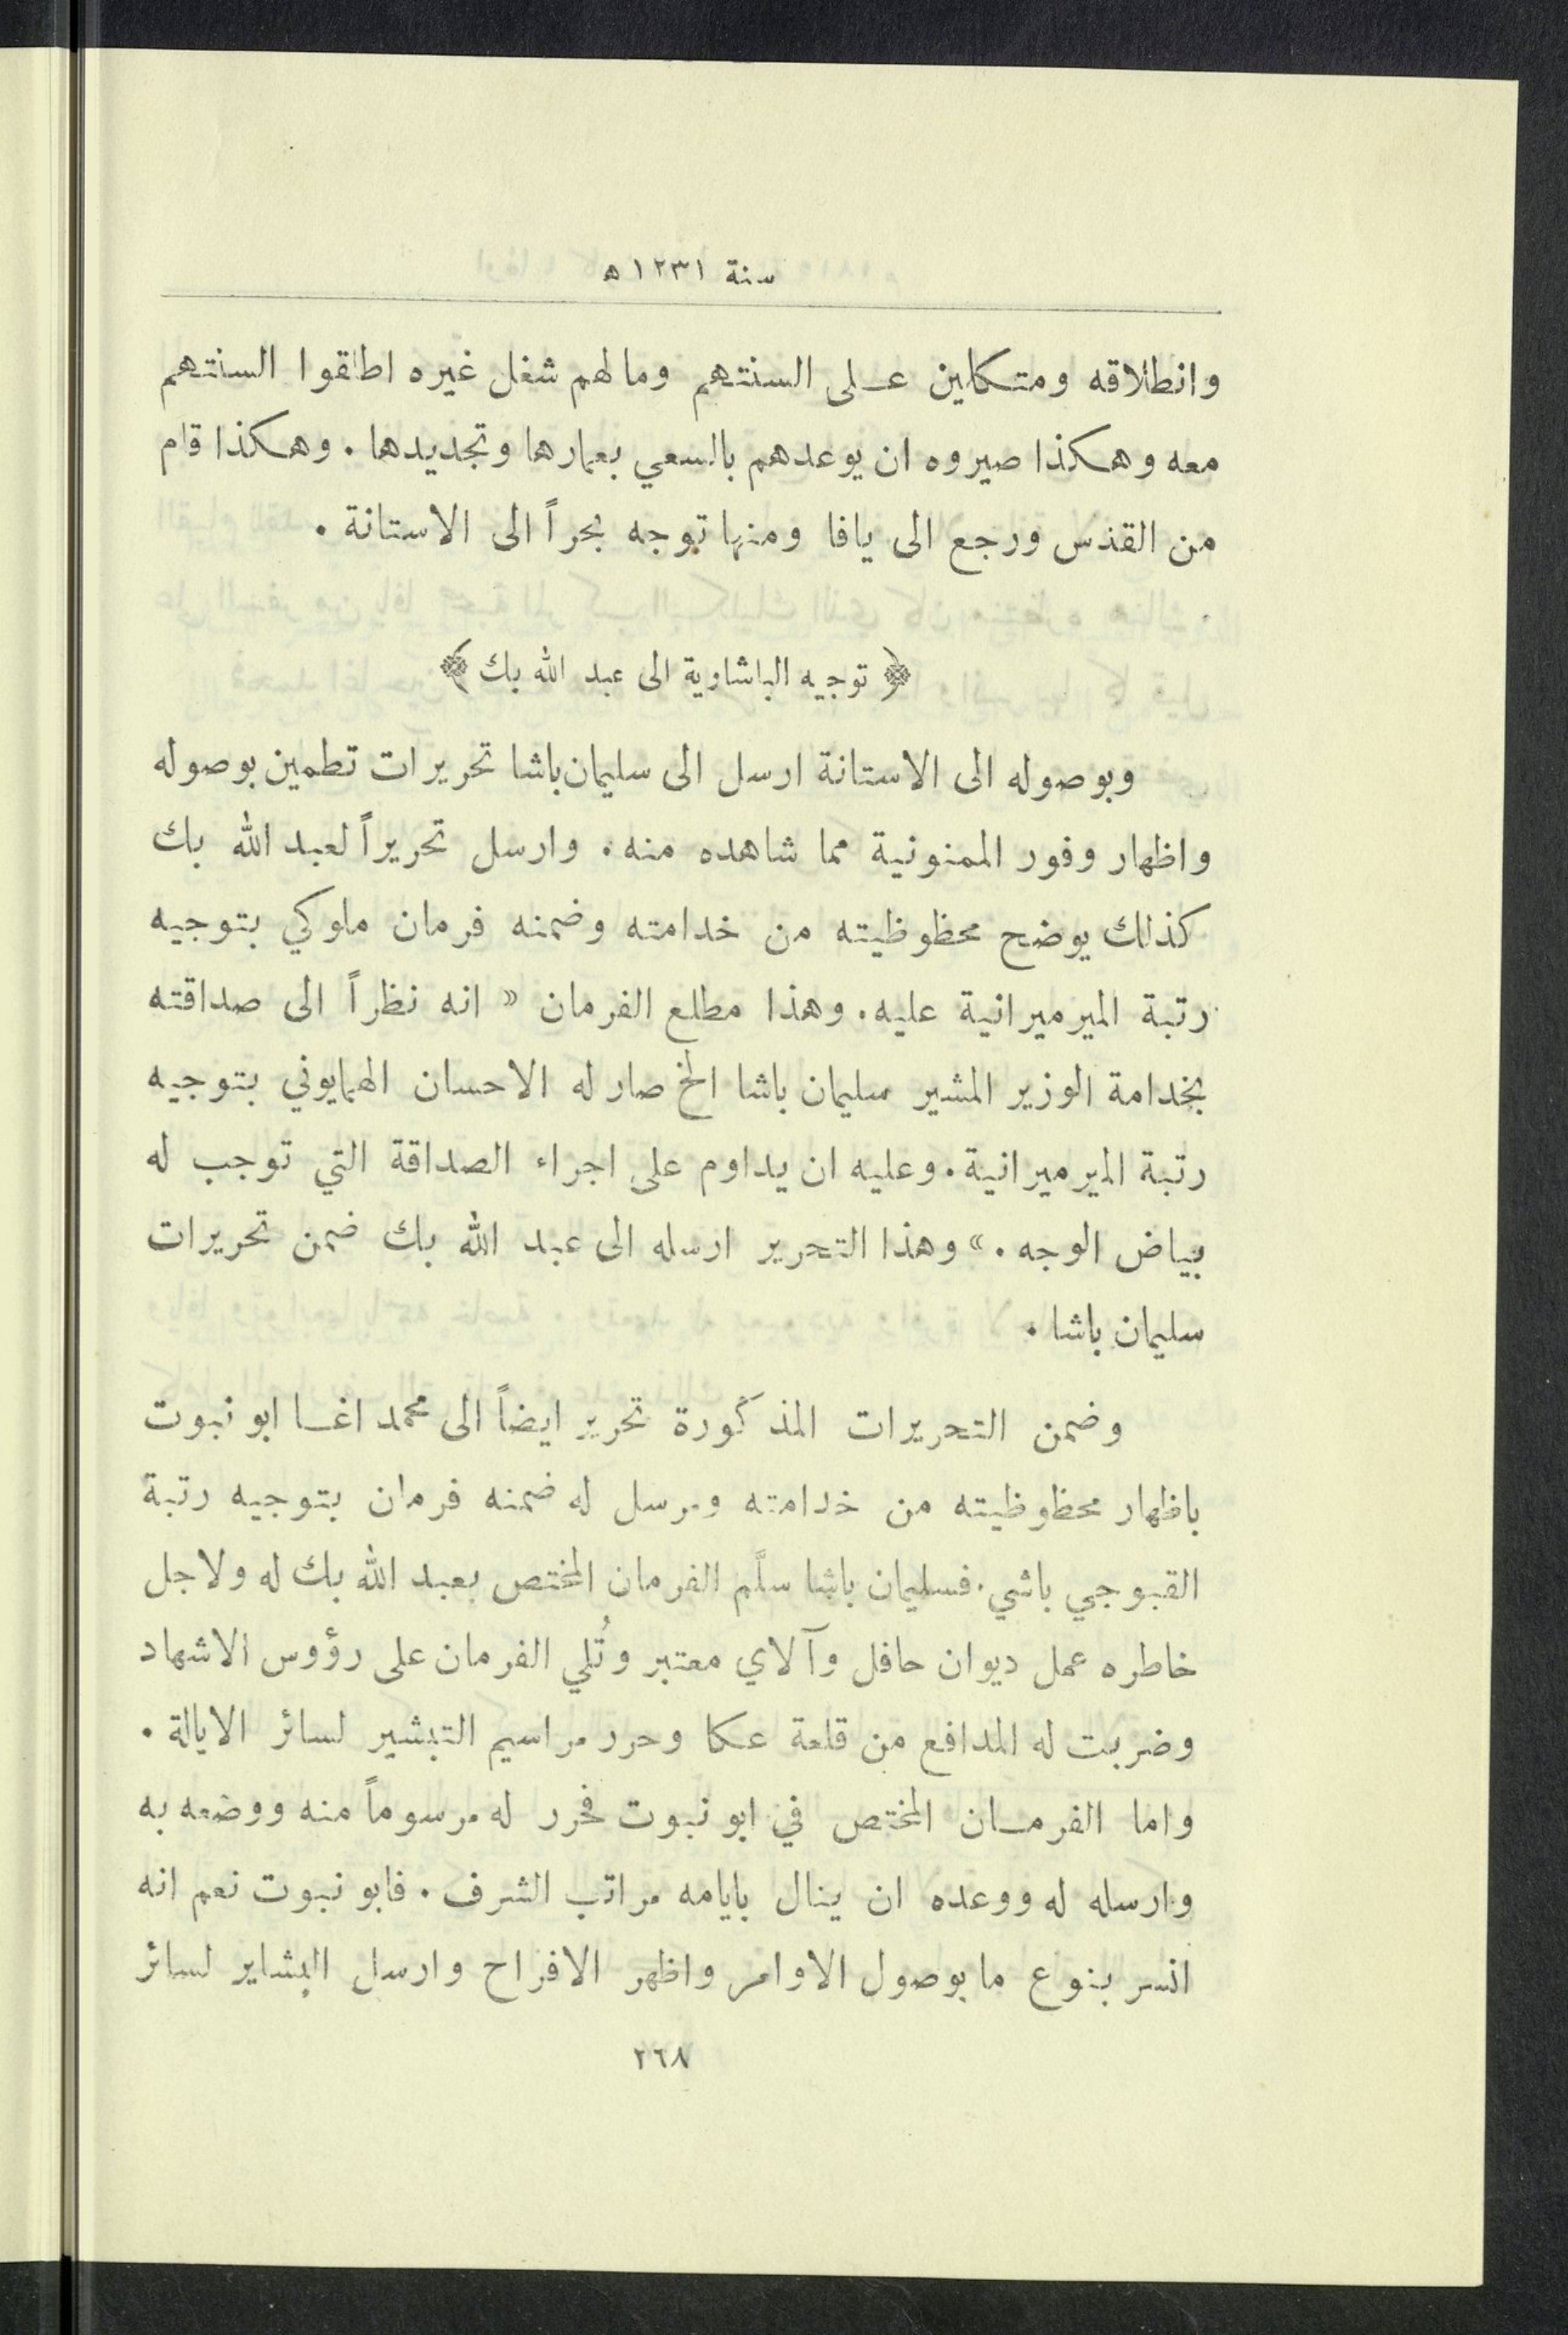 سنة ١٢٣١ ه
وانطلاقه ومتكلين على السنتهم ومالهم شغل غيره اطلقوا السنتهم
معه وهكذا صيروه ان يوعدهم بالسعي بعمارها وتجديدها . وهكذا قام
من القدس ورجع الى يافا ومنها توجه بحراً الى الاستانة .
﴿ توجيه الباشاوية الى عبد الله بك ﴾
وبوصوله الى الاستانة ارسل الى سليمان باشا تحريرات تطمين بوصوله
واظهار وفور الممنونية مما شاهده منه . وارسل تحريراً لعبد الله بك
كذلك يوضح محظوظيته من خدامته وضمنه فرمان ملوكي بتوجيه
رتبة الميرميرانية عليه . وهذا مطلع الفرمان « انه نظراً الى صداقته
بخدامة الوزير المشير سليمان باشا الخ صار له الاحسان الهمايوني بتوجيه
رتبة الميرميرانية . وعليه ان يداوم على اجراء الصداقة التي توجب له
بياض الوجه . » وهذا التحرير ارسله الى عبد الله بك ضمن تحريرات
سليمان باشا .
وضمن التحريرات المذكورة تحرير ايضاً الى محمد اغا ابو نبوت
باظهار محظوظيته من خدامته ومرسل له ضمنه فرمان بتوجيه رتبة
القبوجي باشي . فسليمان باشا سلَّم الفرمان المختص بعبد الله بك له ولاجل
خاطره عمل ديوان حافل وآلاي معتبر وتُلي الفرمان على رؤوس الاشهاد
وضربت له المدافع من قلعة عكا وحرر مراسيم التبشير لسائر الايالة .
واما الفرمان المختص في ابو نبوت فحرر له مرسوماً منه ووضعه به
وارسله له ووعده ان ينال بايامه مراتب الشرف . فابو نبوت نعم انه
انسر بنوع ما بوصول الاوامر واظهر الافراح وارسل البشاير لسائر
٢٦٨